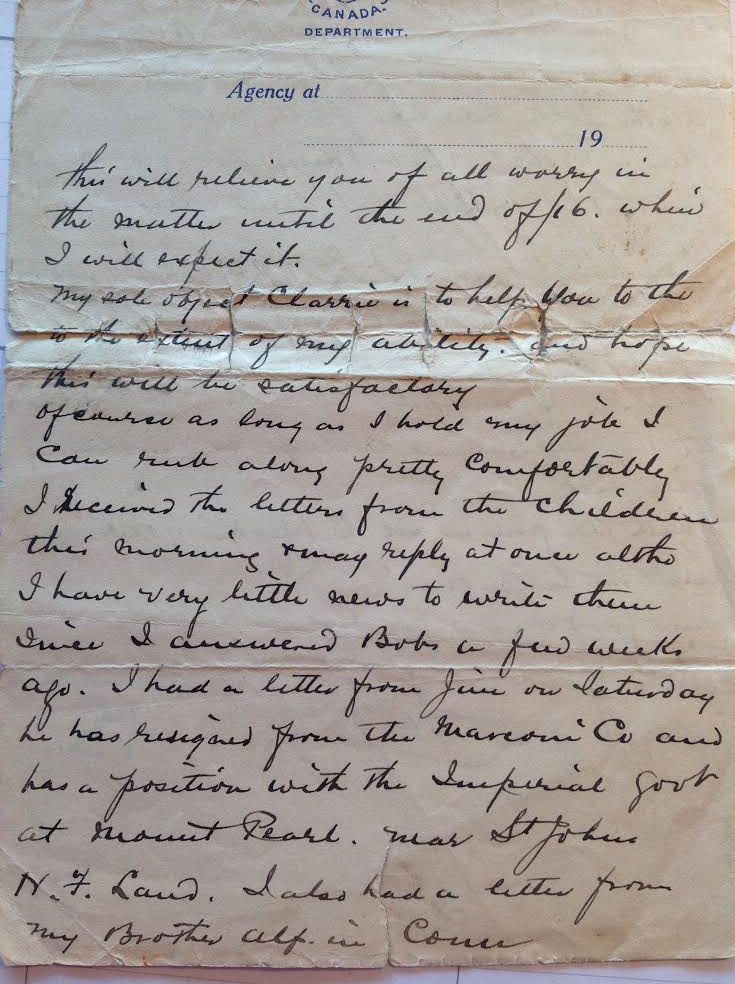 CANADA.
DEPARTMENT.
Agency at
19
this will relieve you of all worry in
the matter until the end of /16. when
I will expect it.
My sole object Clarrie is to help You to the
to the extent of my ability. and hope
this will be satisfactory
of course as long as I hold my job I
Can rub along pretty Comfortably
I Received the letters from the Children
this morning & may reply at once altho
I have very little news to write them
Since I answered Bobs a few weeks
ago. I had a letter from Jim on Saturday
he has resigned from the Marconi Co and
has a position with the Imperial Govt
at Mount Pearl. near St Johns
N.F. Land. I also had a letter from
my Brother Alf. in Conn